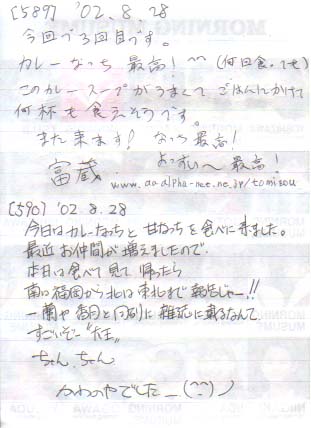 [589] '02. 8. 28
今回で3回目です。
カレーなっち 最高! ^^ (何回食っても)
このカレースープがうまくて ごはんにかけて
何杯も食えそうです。
また来ます! なっち最高!
富蔵 よっすぃ〜 最高!
www.aa.alpha-net.ne.jp/tomisou
[590] '02. 8. 28
今日はカレーなっちと 甘なっちを食べに来ました。
最近お仲間が増えましたので、
本日は食べて見て 帰ったら
南は福岡から北は東北まで報告じゃー!!
一蘭や 福円と同列に 雑誌に載るなんて
すごいぞー "大王"
ちゃん、ちゃん
かわのやでしたー (^^)ノ